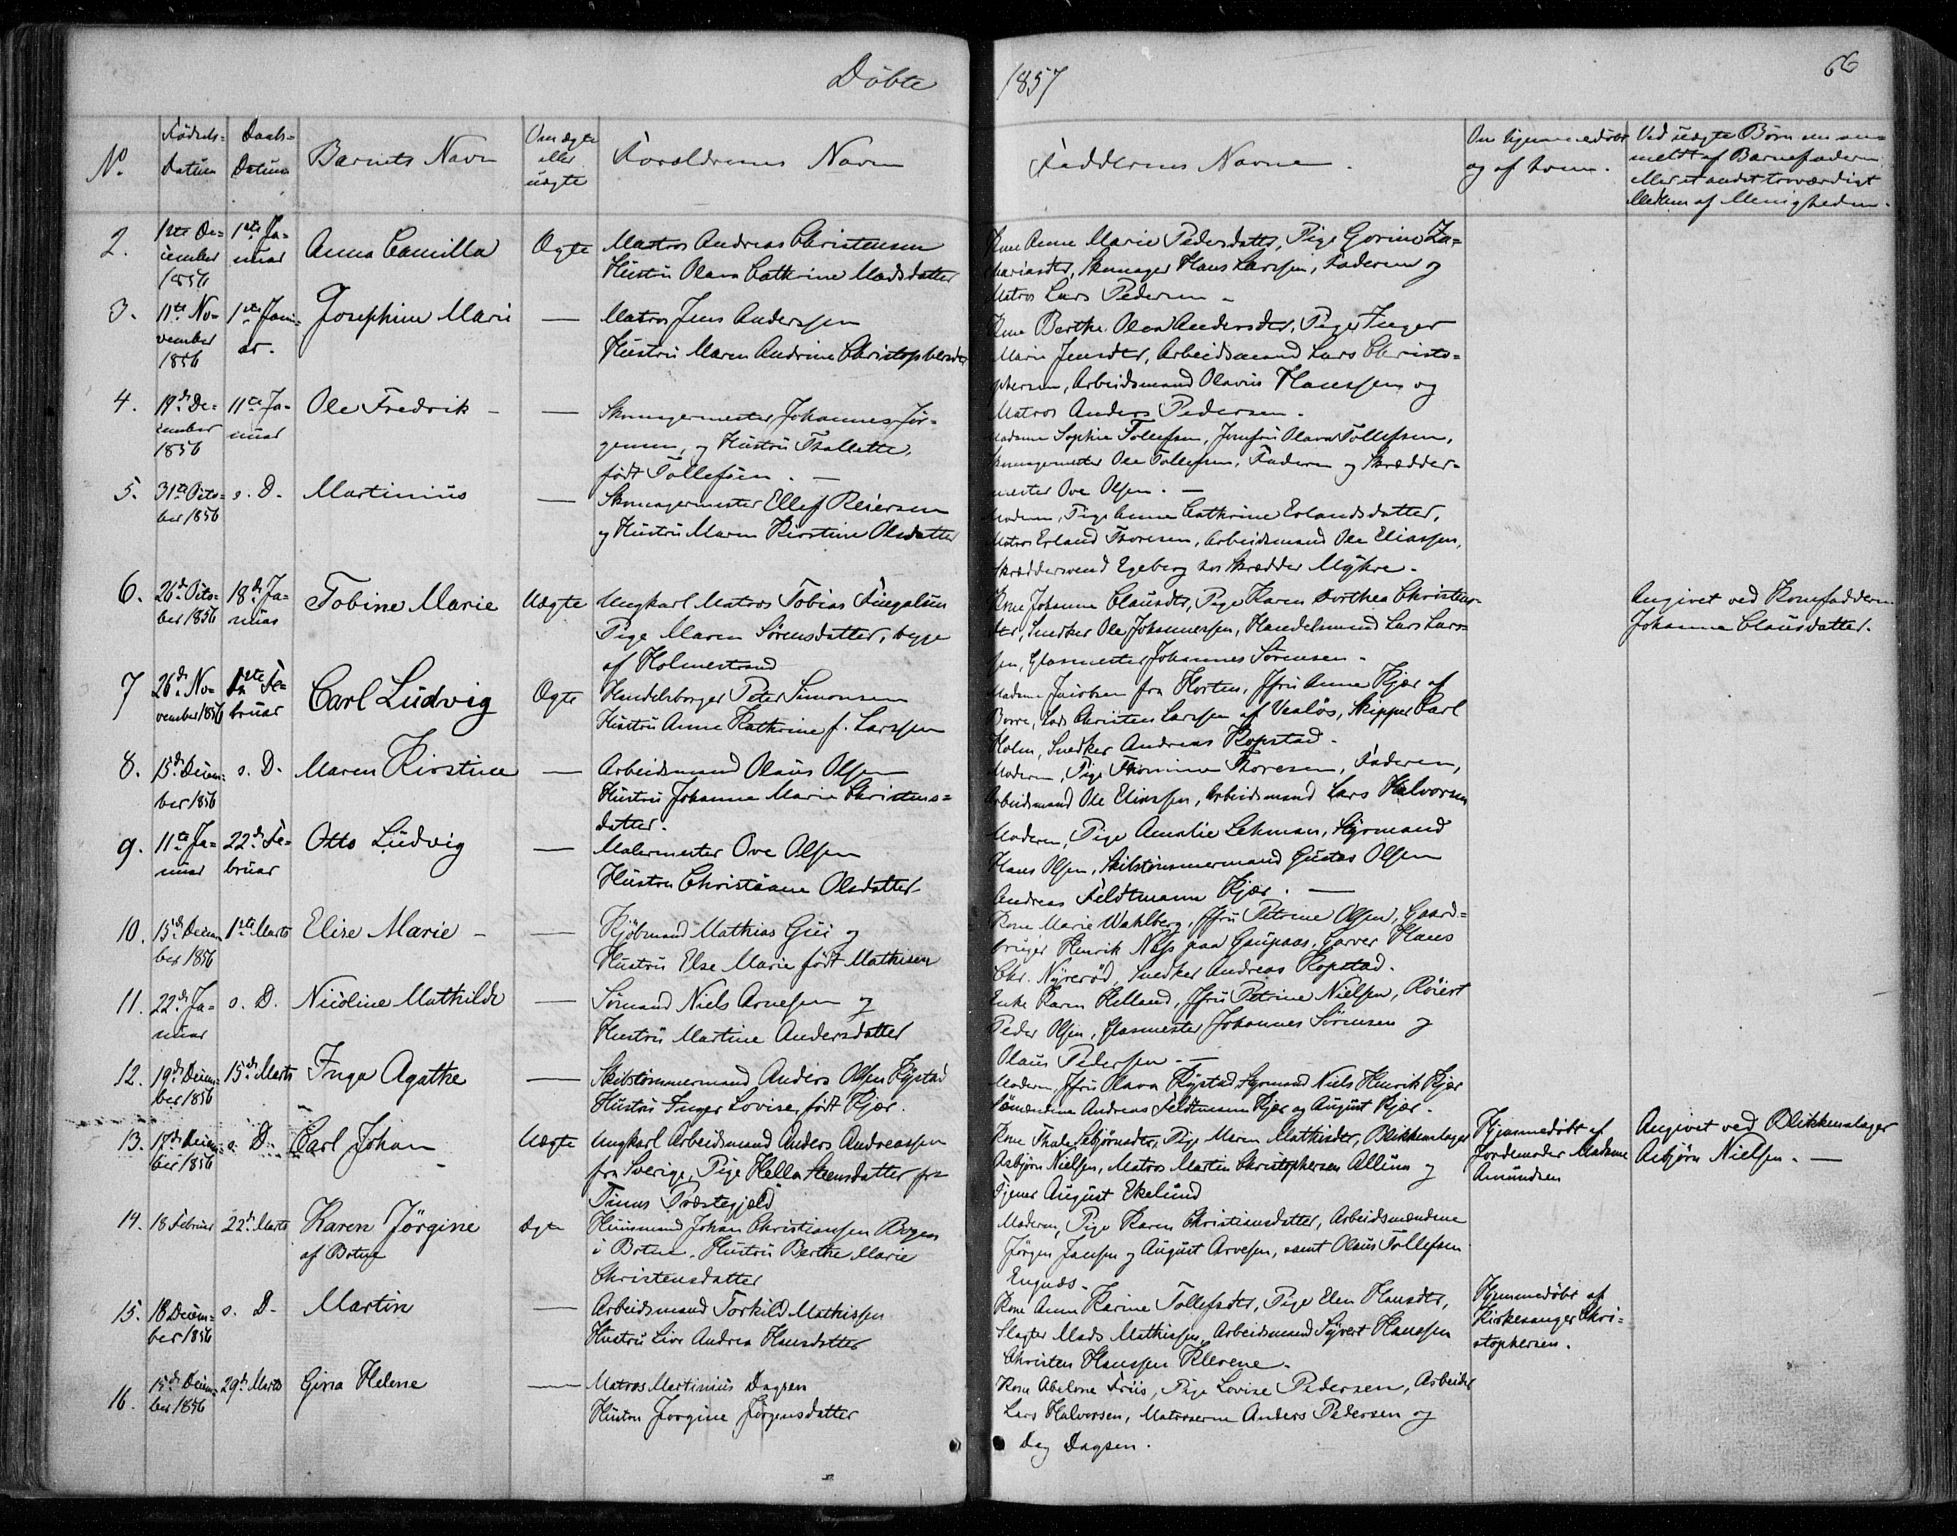 Döbte
1857
66
No.
Fødsels-
Datum
Daabs-
Datum
Barnets Navn
Om ægte
eller
uægte
Forældrenes Navn
Faddernes Navne.
Om hjemmedöbt
og af hvem.
Ved uægte Börn om an-
meldt af Barnefaderen
eller et andet troværdigt
Medlem af Menigheden.
2.
1ste De-
cember
1856
1ste Ja-
nuar
Anna Camilla
Ægte
Matros Andreas Christensen
Hustru Olava Cathrine Madsdatter
Kone Anne Marie Pedersdatter, Pige Gorine Za-
chariasdtr, Skomager Hans Larssen, Faderen og
Matros Lars Pedersen -
3.
11te No-
vember
1856
1ste Janu-
ar.
Josephine Marie
—
Matros Jens Anderssen
Hustru Maren Andrine Christophersdtr
Kone Berthe Olea Andersdtr, Pige Inger
Marie Jensdtr, Arbeidsmand Lars Christo-
phersen, Arbeidsmand Olavus Hanssen og
Matros Anders Pedersen.
4.
19de De-
cember
1856
11te Ja-
nuar
Ole Fredrik -
—
Skomagermester Johannes Jör-
gensen, og Hustru Thallette,
født Tollefsen. —
Madame Sophie Tollefsen, Jomfru Olava Tollefsen,
Skomagermester Ole Tollefsen, Faderen og Skrædder-
mester Ove Olsen. —
5.
31te Octo-
ber 1856
s. D.
Martinius
—
Skomagermester Ellef Reiersen
og Hustru Maren Kirstine Olsdatter
Moderen, Pige Anne Cathrine Erlandsdatter,
Matros Erland Thoresen, Arbeidsmand Ole Eliassen,
Skræddersvend Egeberg hos Skrædder Myhre.
6.
26de Octo-
ber 1856
18de Ja-
nuar
Tobine Marie
Uægte
Ungkarl Matros Tobias Fingalsen
Pige Maren Sörensdatter, begge
af Holmestrand
Kone Johanne Clausdtr, Pige Karen Dorthea Christens-
dtr, Snedker Ole Johannessen, Handelsmand Lars Lars-
sen, Glasmester Johannes Sörensen -
Angivet ved Konefadderen
Johanne Clausdatter.
7
26de No-
vember 1856
1ste Fe-
bruar
Carl Ludvig
Ægte
Handelsborger Peter Simonsen
Hustru Anne Kathrine f. Larssen
Madame Jacobsen fra Horten, Jfru Anne Kjær af
Borre, Lods Christen Larssen af Vealøs, Skipper Carl
Holm, Snedker Andreas Kopstad -
8.
15de Decem-
ber 1856
s. D.
Maren Kirstine
—
Arbeidsmand Olaus Olsen
Hustru Johanne Marie Christens-
datter.
Moderen, Pige Thomine Thoresen, Faderen,
Arbeidsmand Ole Eliassen, Arbeidsmand Lars Halvorsen
9.
11te Ja-
nuar
22de Fe-
bruar
Otto Ludvig
—
Malermester Ove Olsen
Hustru Christiane Olsdatter
Moderen, Pige Amalie Lehman, Styrmand
Hans Olsen, Skibstömmermand Gustav Olsen
Andreas Feldtmann Kjær. —
10.
15de Decem
ber 1856
1ste Marts
Elise Marie -
—
Kjöbmand Mathias Gui og
Hustru Else Marie født Mathisen
Kone Marie Wahlberg, Jfru Petrine Olsen, Gaard-
bruger Henrik Næss paa Gaupaas, Garver Hans
Chr. Nyreröd, Snedker Andreas Kopstad.
11.
22de Ja-
nuar
s. D.
Nicoline Mathilde
—
Sømand Niels Arnesen og
Hustru Martine Andersdatter
Enke Karen Helland, Jfru Petrine Nielsen, Röiert
Peder Olsen, Glasmester Johannes Sörensen og
Olaus Pedersen - —
12.
19de Decem-
ber 1856
15de Marts
Inga Agathe
—
Skibstömmermand Anders Olsen Rystad
Hustru Inger Lovise, født Kjær.
Moderen, Jfru Olava Rystad, Styrmand Niels Henrik Kjær
Sömændene Andreas Feldtmann Kjær og August Kjær.
13.
17de Decem-
ber 1856
s. D.
Carl Johan
Uægte
Ungkarl Arbeidsmand Anders Andreassen
fra Sverige, Pige Hella Steensdatter fra
Tinns Præstegjeld
Kone Thale Sebjörnsdtr, Pige Maren Mathisdtr, Blikkenslager
Asbjörn Nielsen, Matros Martin Christophersen Allum og
Tjener August Ekelund
Hjemmedöbt af
Jordemoder Madame
Amundsen
Angivet ved Blikkenslager
Asbjörn Nielsen. —
14.
18 Februar
22de Marts
Karen Jörgine
af Botne
Ægte
Huusmand Johan Christianssen Bogen
i Botne. Hustru Berthe Marie
Christensdatter
Moderen, Pige Karen Christiansdatter, Arbeidsmændene
Jörgen Jansen og August Arvesen, samt Olaus Tollefsen
Engnæs.
15.
18 Decem-
ber 1856
s. D.
Martin
—
Arbeidsmand Torkild Mathissen
Hustru Live Andrea Hansdatter
Kone Anne Karine Tollefsdtr, Pige Elen Hansdtr,
Slagter Mads Mathissen, Arbeidsmand Syvert Hanssen
Christen Hanssen Klevene.
Hjemmedöbt af
Kirkesanger Chri-
stophersen.
16.
15de Decem-
ber 1856
29de Marts
Gina Helene
—
Matros Martinius Dagsen
Hustru Jorgine Jörgensdatter
Kone Abelone Friis, Pige Lovise Pedersen, Arbeider
Lars Halvorsen, Matroserne Anders Pedersen og
Dag Dagsen.